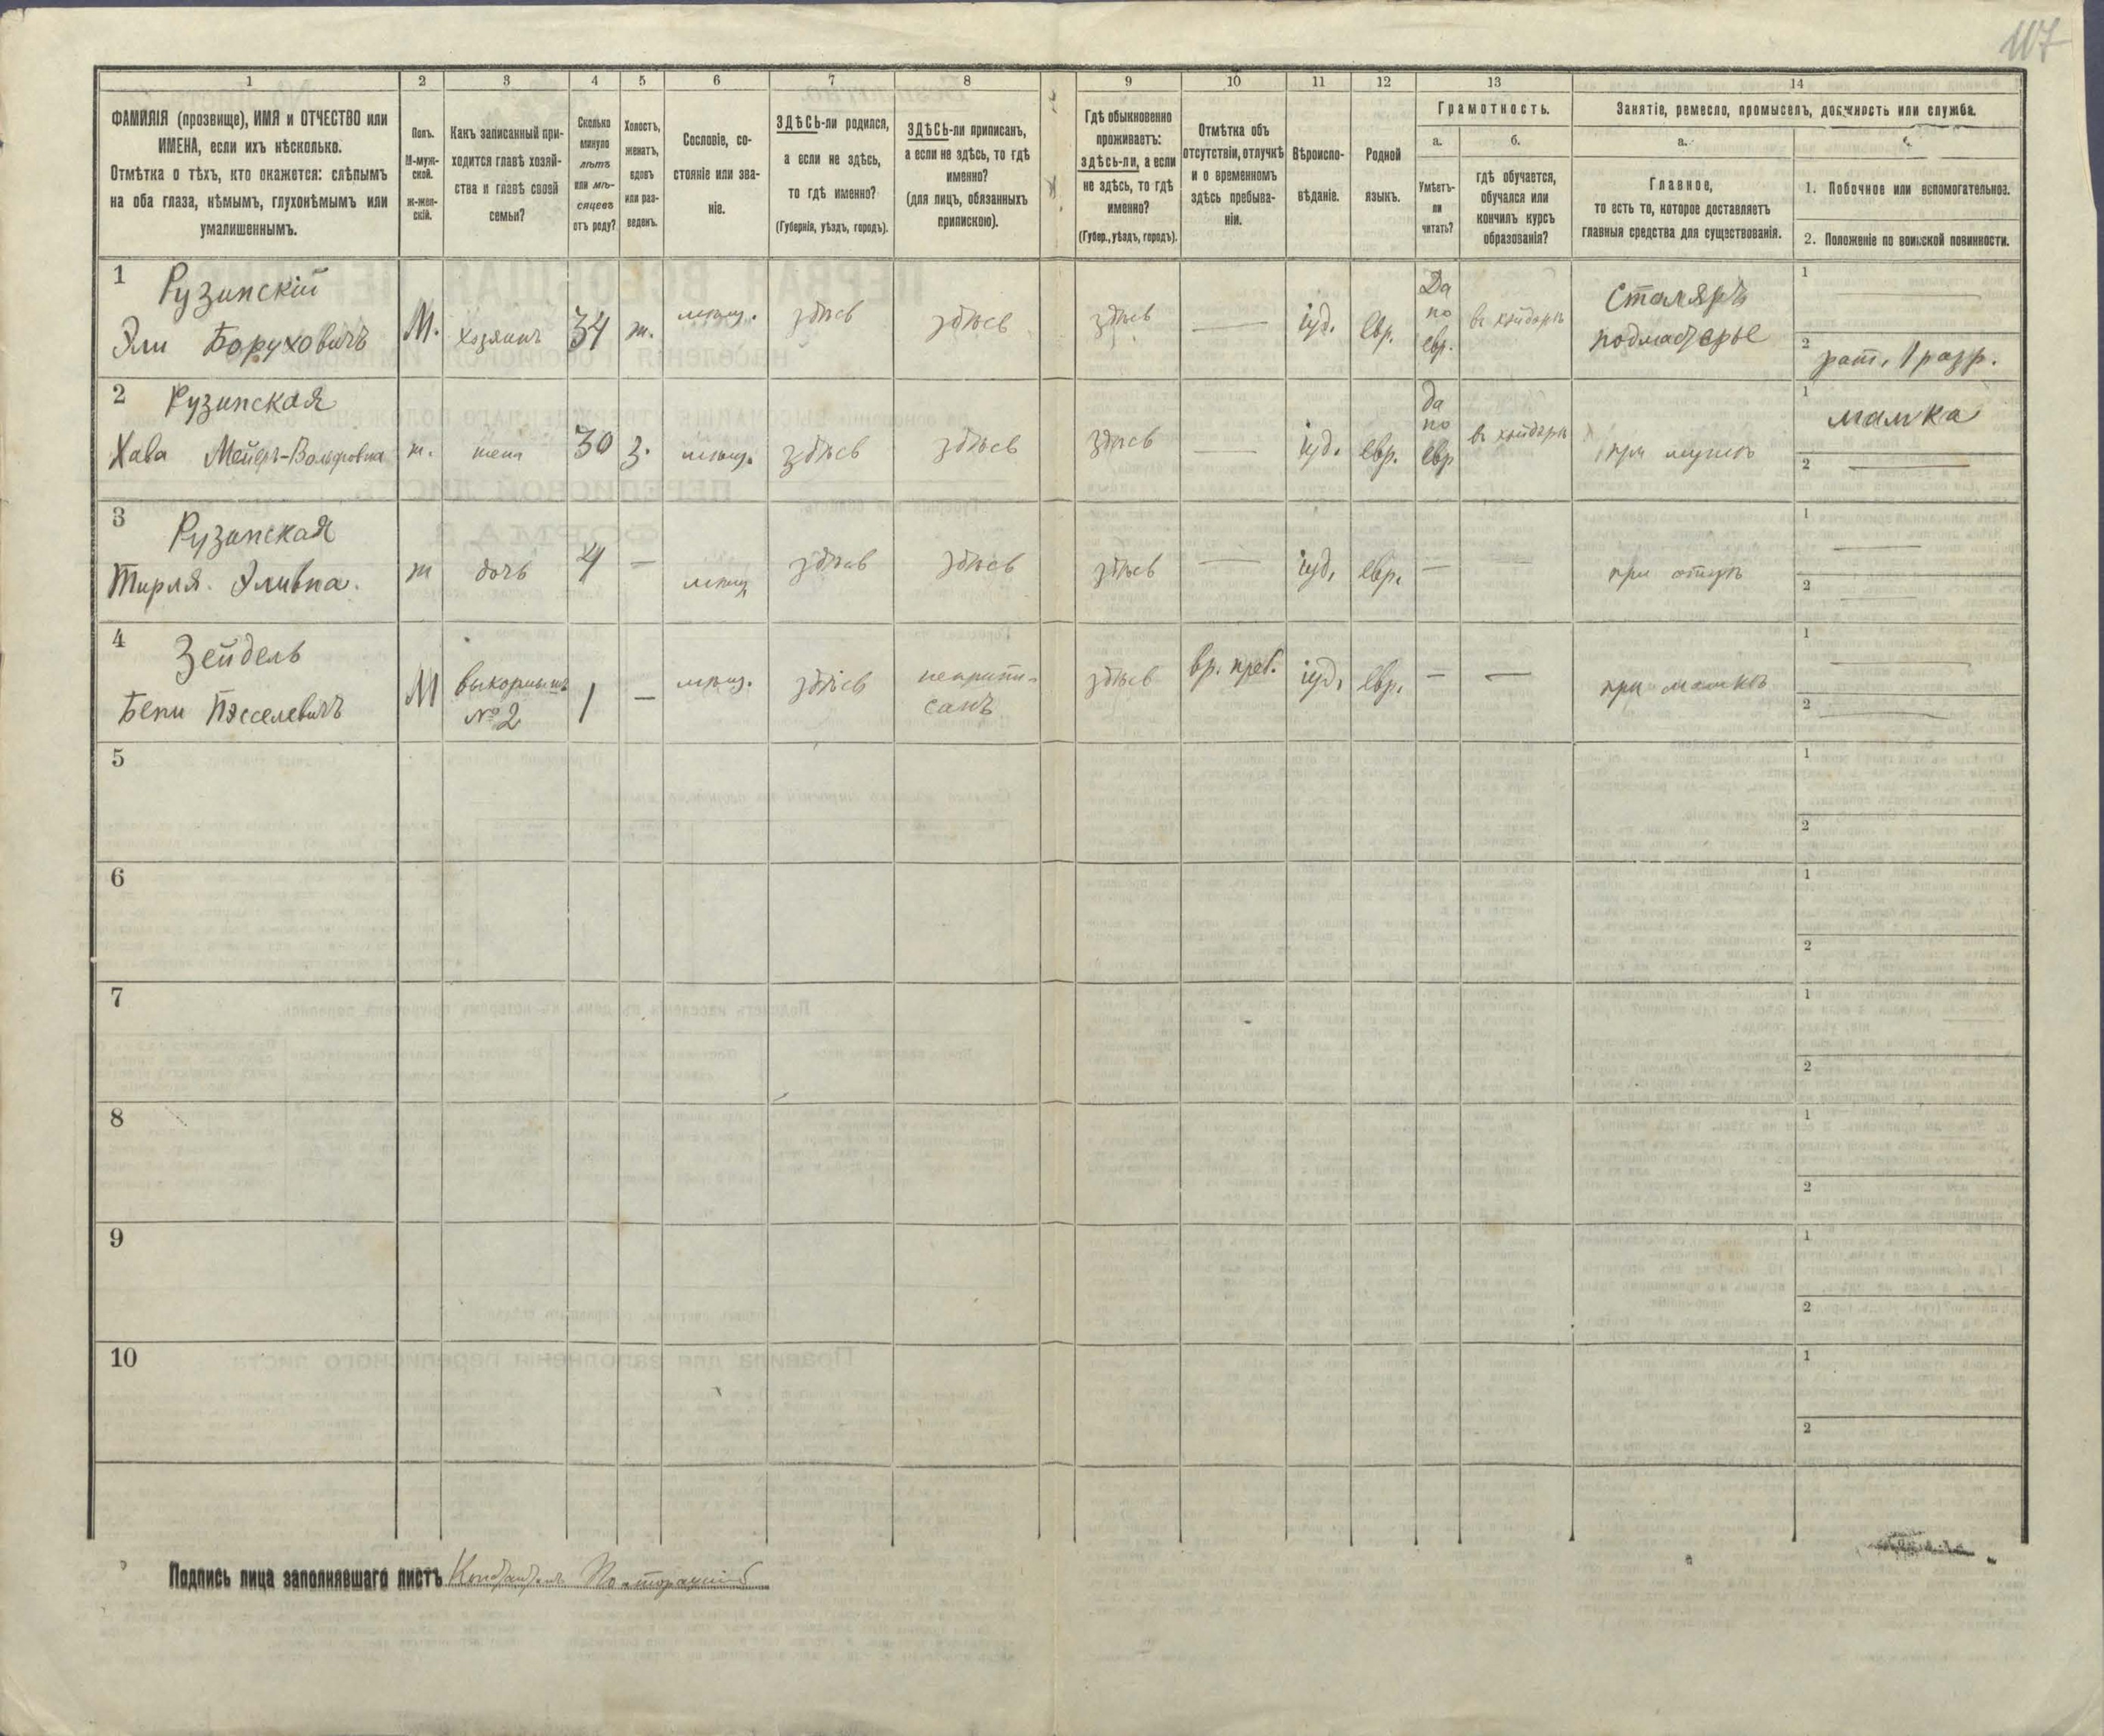 117
1
2
3
4
5
6
7
8
9
10
11
12
13
14
ФАМИЛІЯ (прозвище), ИМЯ и ОТЧЕСТВО или
ИМЕНА, если ихъ нѣсколько.
Отмѣтка о тѣхъ, кто окажется: слѣпымъ
на оба глаза, нѣмымъ, глухонѣмымъ или
умалишеннымъ.
Полъ.
М-муж-
ской.
ж-жен-
скій.
Какъ записанный при-
ходится главѣ хозяй-
ства и главѣ своей
семьи?
Сколько
минуло
лѣтъ
или мѣ-
сяцевъ
отъ роду?
Холостъ,
женатъ,
вдовъ
или раз-
веденъ.
Сословіе, со-
стояніе или зва-
ніе.
ЗДѢСЬ-ли родился,
а если не здѣсь,
то гдѣ именно?
(Губернія, уѣздъ, городъ).
ЗДѢСЬ-ли приписанъ,
а если не здѣсь, то гдѣ
именно?
(для лицъ, обязанныхъ
припискою).
Гдѣ обыкновенно
проживаетъ:
здѣсь-ли, а если
не здѣсь, то гдѣ
именно?
(Губер., уѣздъ, городъ).
Отмѣтка объ
отсутствіи, отлучкѣ
и о временномъ
здѣсь пребыва-
ніи.
Вѣроиспо-
вѣданіе.
Родной
языкъ.
Грамотность.
а.
Умѣетъ-
ли
читать?
б.
гдѣ обучается,
обучался или
кончилъ курсъ
образованія?
Занятіе, ремесло, промыселъ, должность или служба.
а.
Главное,
то есть то, которое доставляетъ
главныя средства для существованія.
1. Побочное или вспомогательное.
2. Положеніе по воинской повинности.
1
Рузинскій
Эли Боруховичъ
М.
хозяинъ
34
ж.
мѣщ.
здѣсь
здѣсь
здѣсь
—
іуд.
евр.
Да
по
евр.
въ хейдерѣ
Столяръ
подмастерье
1
—
2
рат. 1 разр.
2
Рузинская
Хава Мейеръ-Вольфовна
ж.
жена
30
з.
мѣщ.
здѣсь
здѣсь
здѣсь
—
іуд.
евр.
да
по
евр
въ хейдерѣ
при мужѣ
1
мамка
2
—
3
Рузинская
Тирля Эливна.
ж
дочь
4
—
мѣщ
здѣсь
здѣсь
здѣсь
—
іуд.
евр.
—
—
при отцѣ
1
—
2
—
4
Зейдель
Бени Пэсселевичъ
М
выкормышъ
№ 2
1
—
мѣщ.
здѣсь
неприпи-
санъ
здѣсь
вр. преб.
іуд.
евр.
—
—
при мамкѣ
1
—
2
—
5
1
2
6
1
2
7
1
2
8
1
2
9
1
2
10
1
2
Подпись лица заполнявшаго листъ Константинъ